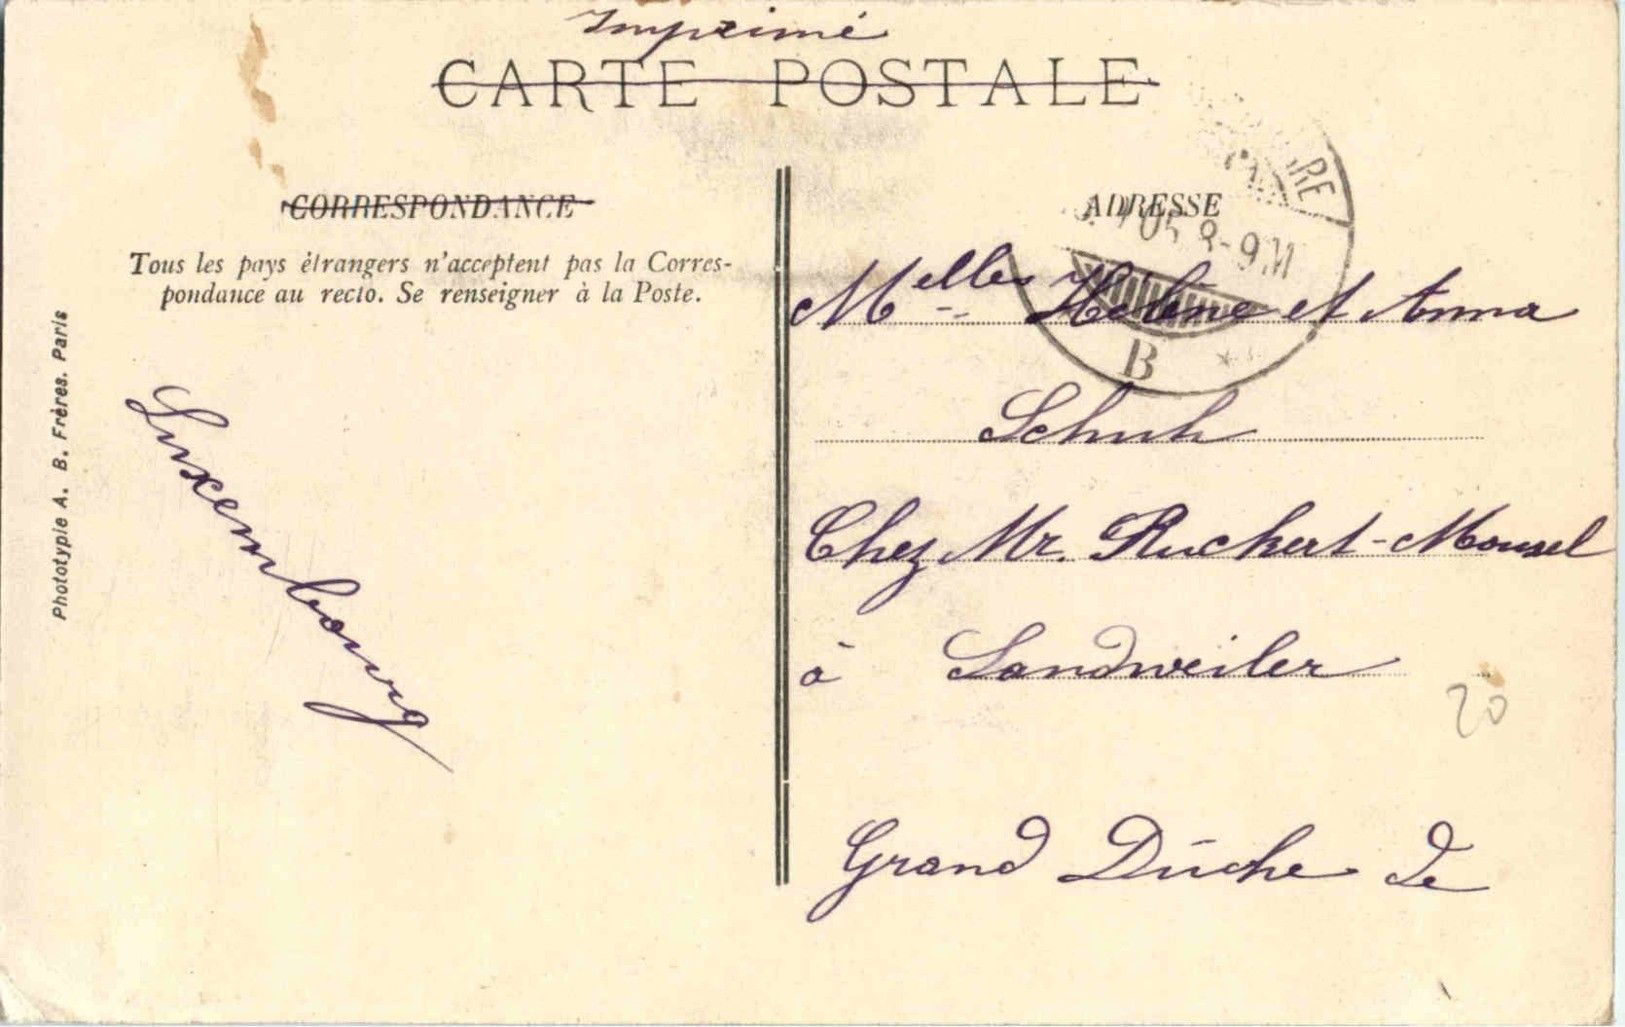 Imprimé
CARTE POSTALE
CORRESPONDANCE
Tous les pays étrangers n'acceptent pas la Corres-
pondance au recto. Se renseigner à la Poste.
Phototypie A. B. Frères. Paris
Luxembourg
ADRESSE
05 8-9M
B
Melles Hélène et Anna
Schuh
Chez Mr. Ruckert-Mousel
à Sandweiler
20
Grand Dúche de